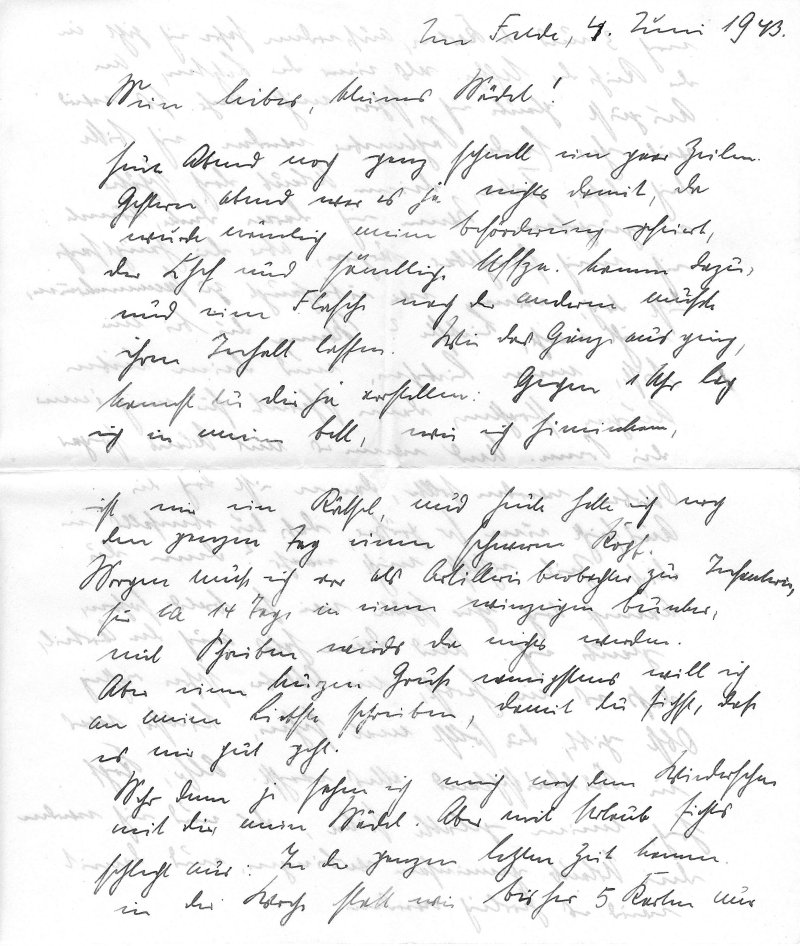 Im Felde, 4. Juni 1943.
Mein liebes, kleines Mädel!
Heute Abend noch ganz schnell ein paar Zeilen.
Gestern abend war es ja nichts damit, da
wurde nämlich meine Beförderung gefeiert,
der Chef und sämtliche Uffze. kamen dazu,
und eine Flasche nach der anderen mußte
ihren Inhalt lassen. Wie das Ganze ausging,
kannst du dir ja vorstellen. Gegen 1 Uhr lag
ich in meinem Bett, wie ich hineinkam,
ist mir ein Rätsel, und heute hatte ich noch
den ganzen Tag einen schweren Kopf.
Morgen muß ich vor als Artilleriebeobachter zur Infanterie,
für ca 14 Tage in einen winzigen Bunker,
mit Schreiben wirds da nichts werden.
Aber einen kurzen Gruß wenigstens will ich
an meine Liebste schreiben, damit du siehst, daß
es mir gut geht.
Mehr denn je sehne ich mich nach dem Wiedersehen
mit dir mein Mädel. Aber mit Urlaub siehts
schlecht aus. In der ganzen letzten Zeit kamen
in der Woche statt wie bisher 5 Karten nur